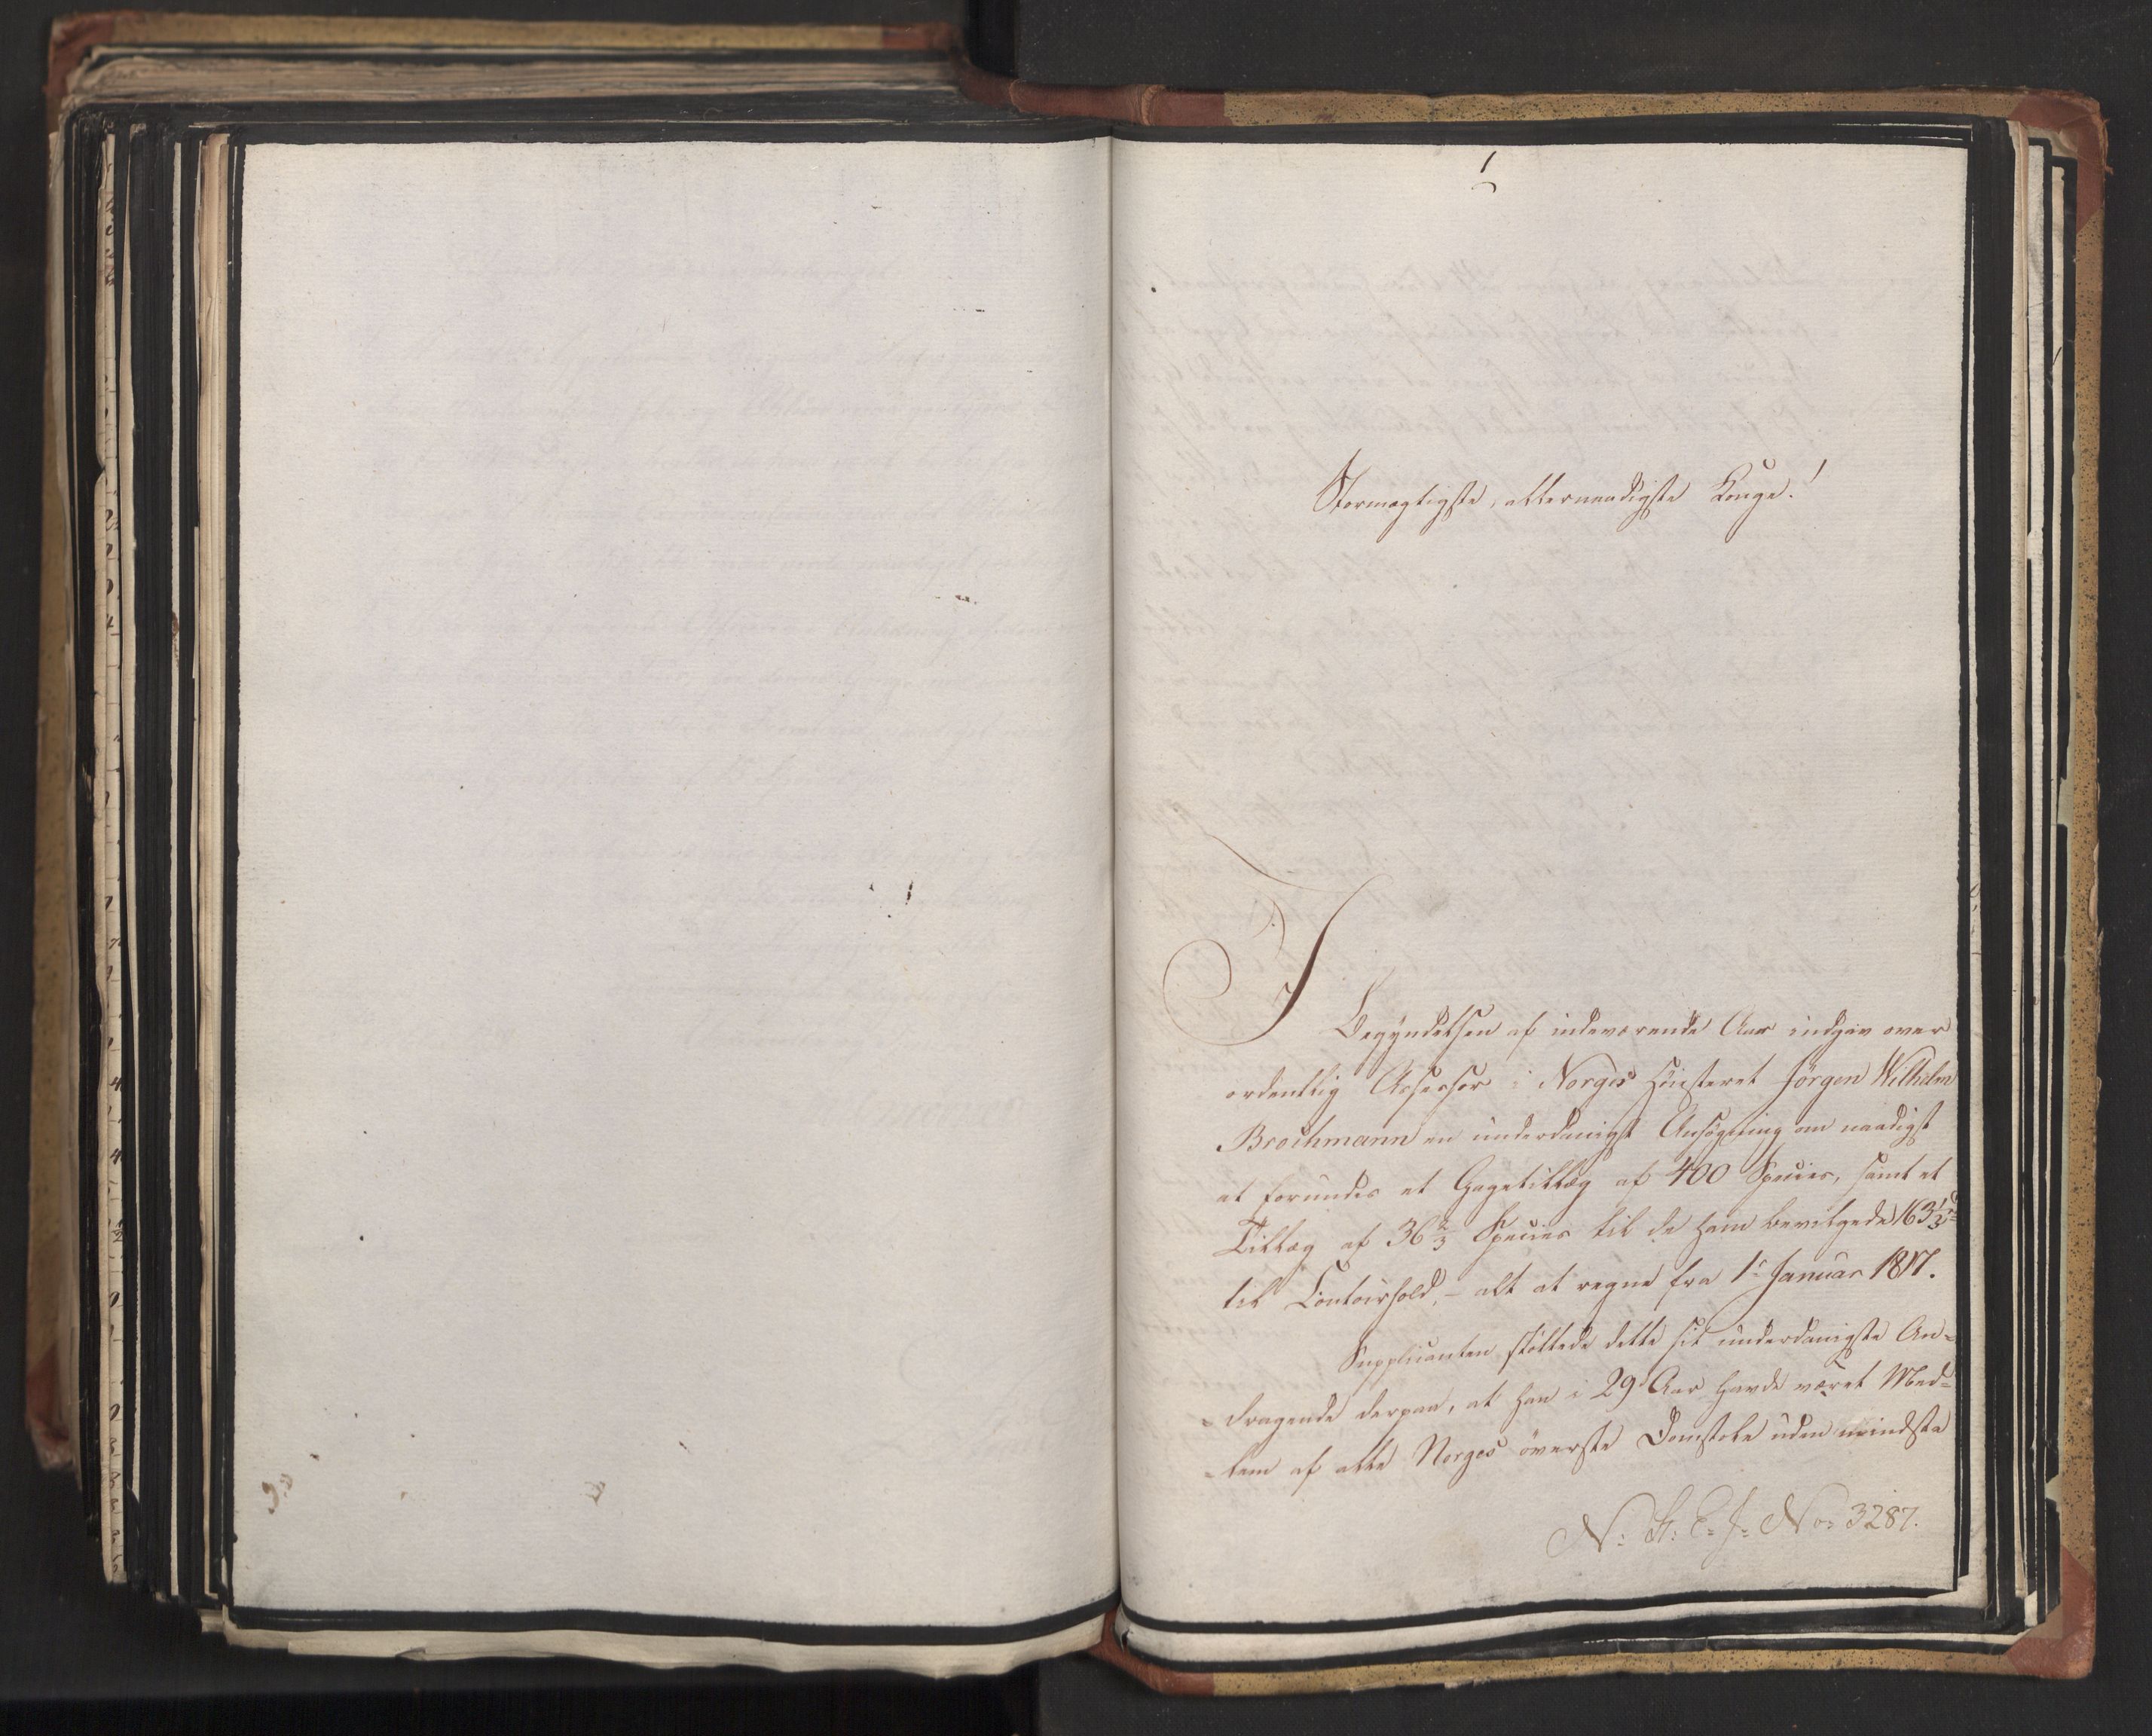 1
Stormægtigste, allernaadigste Konge!
I
Begyndelsen af indeværende Aar indgav over
ordentlig Assessor i Norges Høiesteret Jörgen Wilhelm
Brochmann en underdanigst Ansøgning om naadigst
at forundes et Gagetillæg af 400 Species, samt et
Tillæg af 36 2/3 Species til de ham bevilgede 163 1/3
til Contoirhold, - alt at regne fra 1e Januar 1817.
Supplicanten støttede dette sit underdanigste An=
=dragende derpaa, at han i 29 Aar havde været Med=
=lem af alle Norges øverste Domstole uden mindste
N: H: C: J: No: 3287.